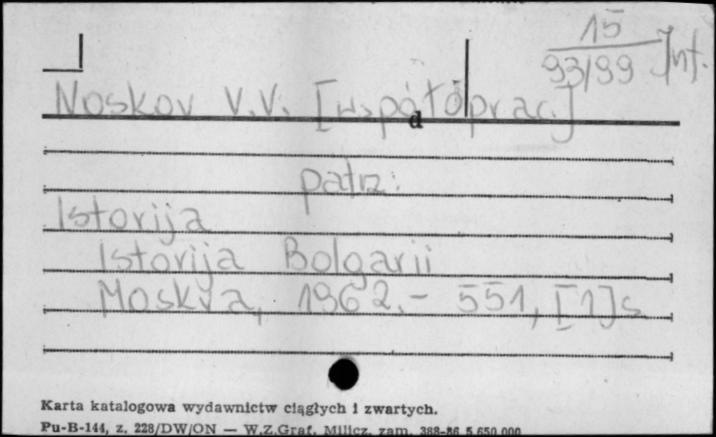 15
93/99 Int.
Noskov V.V. [współprac.]
d
patrz:
Istorija
Istorija Bolgarii
Moskva, 1962. - 551, [1] s
Karta katalogowa wydawnictw ciągłych i zwartych.
Pu-B-144, z. 228/DW/ON — W.Z.Graf. Milicz, zam. 388-86 5.650.000